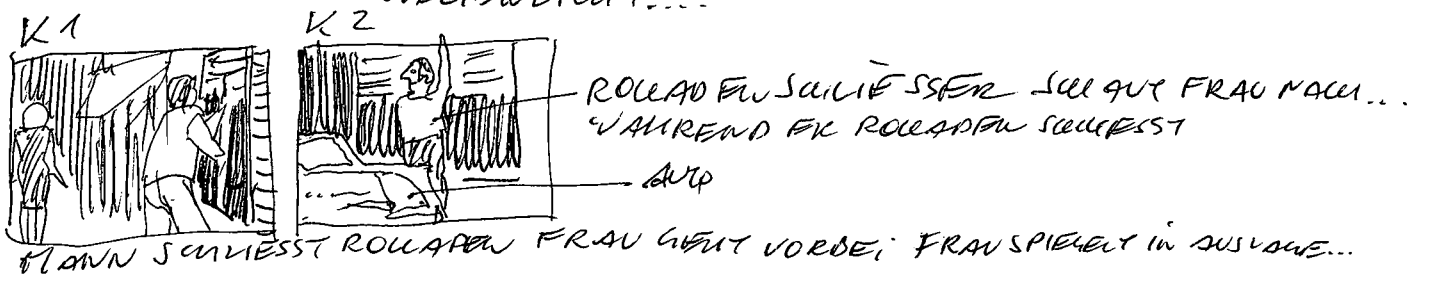 K1
K2
ROLLADENSCHLIESSER SCHAUT FRAU NACH...
WÄHREND ER ROLLADEN SCHLIESST
AUTO
MANN SCHLIESST ROLLADEN FRAU GEHT VORBEI FRAU SPIEGELT IN AUSLAGE...